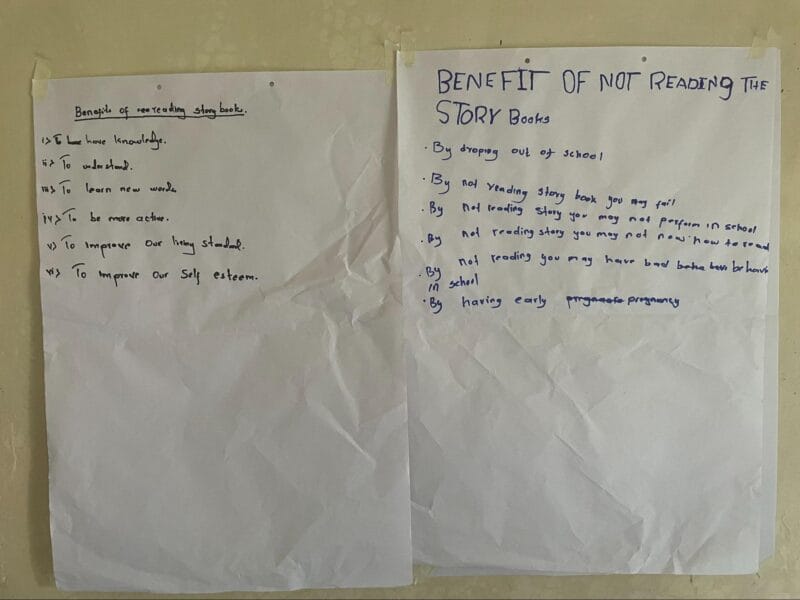 Benefits of reading story book.
i> To have knowledge.
ii> To understand.
iii> To learn new words
iv> To be more active.
v> To improve our living standard.
vi> To improve our self esteem.
BENEFIT OF NOT READING THE
STORY BOOKS
• By droping out of school
• By not reading story book you may fail
• By not reading story you may not perform in school
• By not reading story you may not now how to read
• By not reading you may have bad behave
in school
• By having early pregnancy